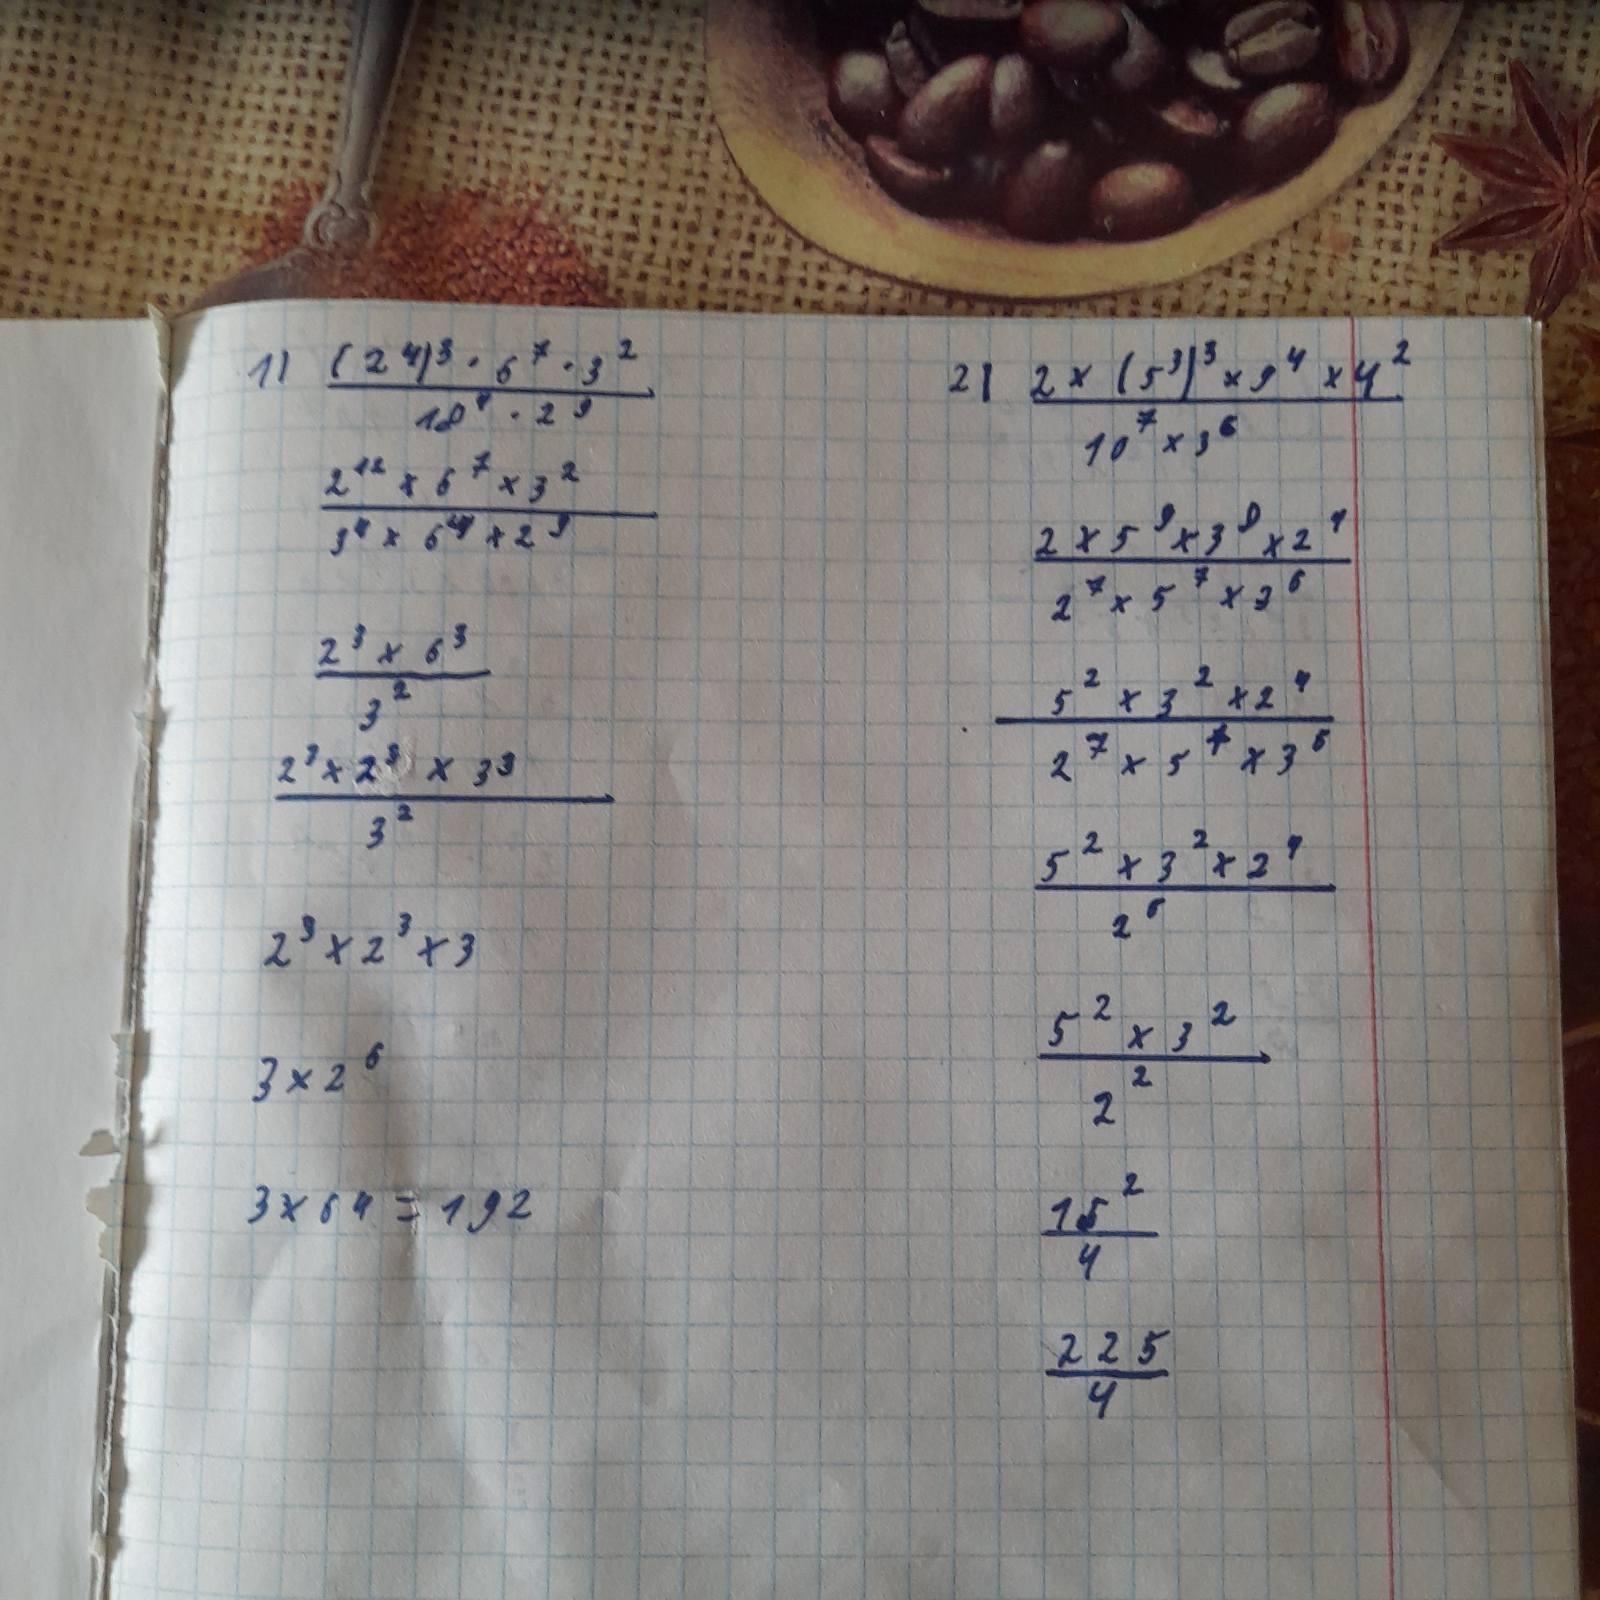 1) (2⁴)³ · 6⁷ · 3²
18⁴ · 2⁹
2¹² × 6⁷ × 3²
3⁴ × 6⁴ × 2⁹
2³ × 6³
3²
2³ × 2³ × 3³
3²
2³ × 2³ × 3
3 × 2⁶
3 × 64 = 192
2) 2 × (5³)³ × 9⁴ × 4²
10⁷ × 3⁶
2 × 5⁹ × 3⁸ × 2⁴
2⁷ × 5⁷ × 3⁶
5² × 3² × 2⁴
2⁷ × 5⁷ × 3⁶
5² × 3² × 2⁴
2⁶
5² × 3²
2²
15²
4
225
4